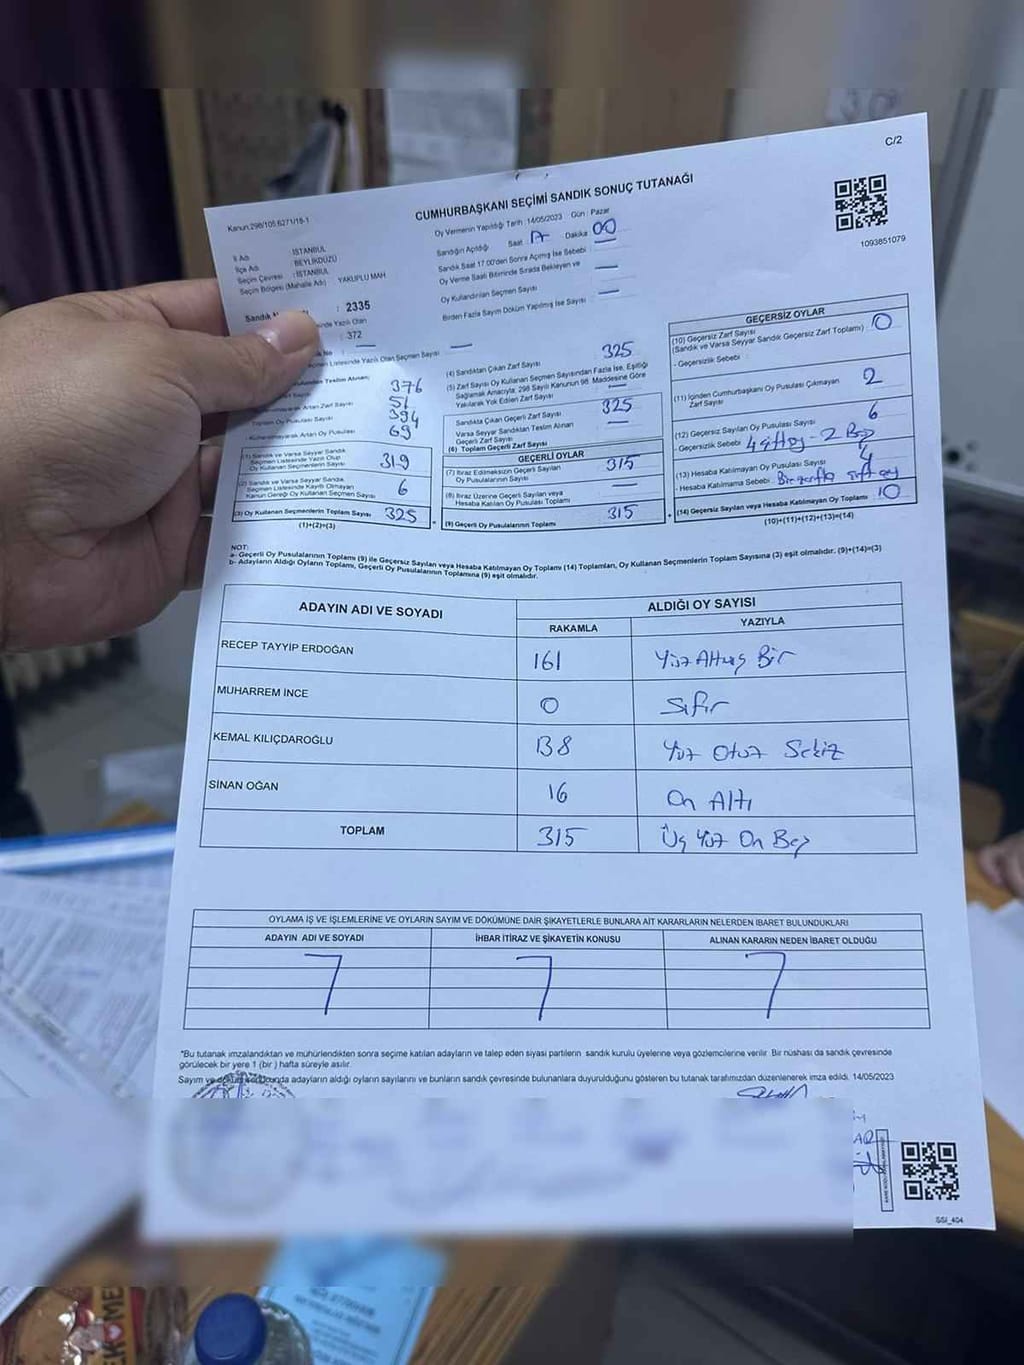 C/2
CUMHURBAŞKANI SEÇİMİ SANDIK SONUÇ TUTANAĞI
Kanun:298/105,6271/18-1
Oy Vermenin Yapıldığı Tarih :14/05/2023 Gün : Pazar
1093851079
İl Adı : İSTANBUL
İlçe Adı : BEYLİKDÜZÜ
Seçim Çevresi : İSTANBUL
Seçim Bölgesi (Mahalle Adı) YAKUPLU MAH
Sandık : 2335
: 372
Sandığın Açıldığı Saat Dakika 00
Sandık Saat 17:00'den Sonra Açılmış İse Sebebi
Oy Verme Saati Bitiminde Sırada Bekleyen ve
Oy Kullandırılan Seçmen Sayısı
Birden Fazla Sayım Döküm Yapılmış İse Sayısı
376
51
394
Kullanılmayarak Artan Oy Pusulası 69
(1) Sandık ve Varsa Seyyar Sandık
Seçmen Listesinde Yazılı Olup
Oy Kullanan Seçmenlerin Sayısı 319
(2) Sandık ve Varsa Seyyar Sandık
Seçmen Listesinde Kayıtlı Olmayan
Kanun Gereği Oy Kullanan Seçmen Sayısı 6
(3) Oy Kullanan Seçmenlerin Toplam Sayısı 325
(1)+(2)=(3)
(4) Sandıktan Çıkan Zarf Sayısı 325
(5) Zarf Sayısı Oy Kullanan Seçmen Sayısından Fazla İse, Eşitliği
Sağlamak Amacıyla; 298 Sayılı Kanunun 98. Maddesine Göre
Yakılarak Yok Edilen Zarf Sayısı
Sandıkta Çıkan Geçerli Zarf Sayısı 325
Varsa Seyyar Sandıktan Teslim Alınan
Geçerli Zarf Sayısı
(6) Toplam Geçerli Zarf Sayısı
GEÇERLİ OYLAR
(7) İtiraz Edilmeksizin Geçerli Sayılan
Oy Pusulalarının Sayısı 315
(8) İtiraz Üzerine Geçerli Sayılan veya
Hesaba Katılan Oy Pusulası Toplamı
(9) Geçerli Oy Pusulalarının Toplamı 315
GEÇERSİZ OYLAR
(10) Geçersiz Zarf Sayısı
(Sandık ve Varsa Seyyar Sandık Geçersiz Zarf Toplamı) 0
- Geçersizlik Sebebi :
(11) İçinden Cumhurbaşkanı Oy Pusulası Çıkmayan
Zarf Sayısı 2
(12) Geçersiz Sayılan Oy Pusulası Sayısı 6
- Geçersizlik Sebebi
(13) Hesaba Katılmayan Oy Pusulası Sayısı
- Hesaba Katılmama Sebebi :
(14) Geçersiz Sayılan veya Hesaba Katılmayan Oy Toplamı 10
(10)+(11)+(12)+(13)=(14)
NOT:
a- Geçerli Oy Pusulalarının Toplamı (9) ile Geçersiz Sayılan veya Hesaba Katılmayan Oy Toplamı (14) Toplamları, Oy Kullanan Seçmenlerin Toplam Sayısına (3) eşit olmalıdır. (9)+(14)=(3)
b- Adayların Aldığı Oyların Toplamı, Geçerli Oy Pusulalarının Toplamına (9) eşit olmalıdır.
ADAYIN ADI VE SOYADI ALDIĞI OY SAYISI
RAKAMLA YAZIYLA
RECEP TAYYİP ERDOĞAN 161 Yüz Altmış Bir
MUHARREM İNCE 0 Sıfır
KEMAL KILIÇDAROĞLU 138 Yüz Otuz Sekiz
SİNAN OĞAN 16 On Altı
TOPLAM 315 Üç Yüz On Beş
OYLAMA İŞ VE İŞLEMLERİNE VE OYLARIN SAYIM VE DÖKÜMÜNE DAİR ŞİKAYETLERLE BUNLARA AİT KARARLARIN NELERDEN İBARET BULUNDUKLARI
ADAYIN ADI VE SOYADI İHBAR İTİRAZ VE ŞİKAYETİN KONUSU ALINAN KARARIN NEDEN İBARET OLDUĞU
*Bu tutanak imzalandıktan ve mühürlendikten sonra seçime katılan adayların ve talep eden siyasi partilerin sandık kurulu üyelerine veya gözlemcilerine verilir. Bir nüshası da sandık çevresinde
görülecek bir yere 1 (bir ) hafta süreyle asılır.
Sayım ve döküm sonucunda adayların aldığı oyların sayılarını ve bunların sandık çevresinde bulunanlara duyurulduğunu gösteren bu tutanak tarafımızdan düzenlenerek imza edildi. 14/05/2023
SSI_404